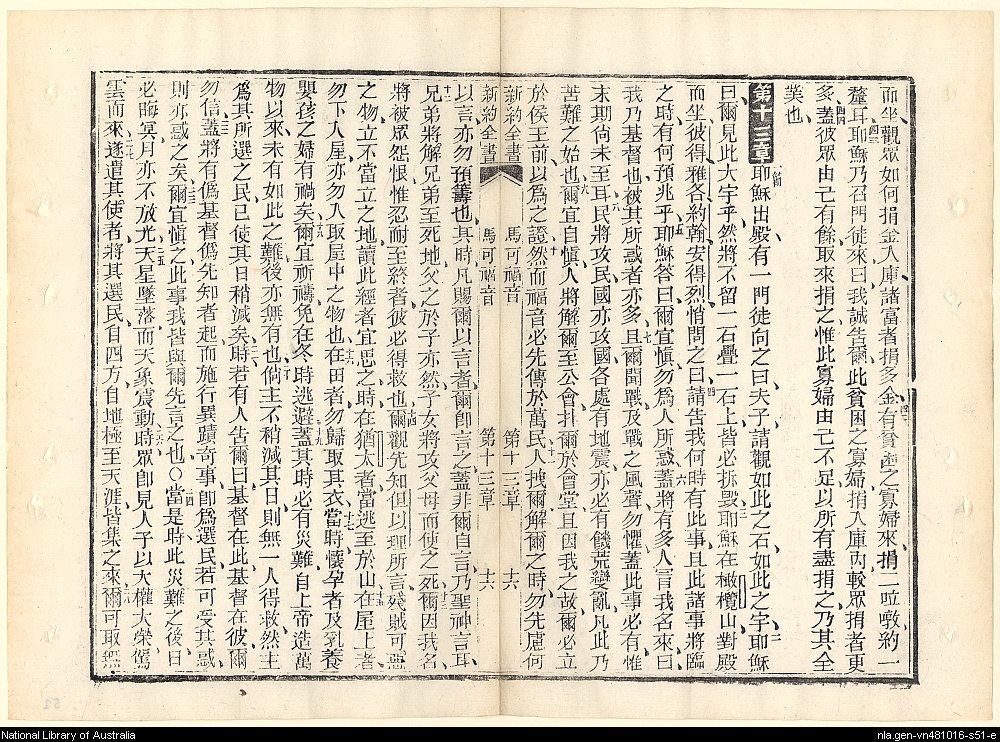 而坐觀眾如何捐金入庫諸富者捐多金有貧乏之寡婦來捐二㕸噋約一
釐耳耶穌乃召門徒來曰我誠告爾此貧困之寡婦捐入庫內較眾捐者更
多蓋彼眾由己有餘取來捐之惟此寡婦由己不足以所有盡捐之乃其全
業也
第十三章 耶穌出殿有一門徒向之曰夫子請觀如此之石如此之宇耶穌
曰爾見此大宇乎然將不留一石疊一石上皆必拆毀耶穌在橄欖山對殿
而坐彼得雅各約翰安得烈悄問之曰請告我何時有此事且此諸事將臨
之時有何預兆乎耶穌答曰爾宜慎勿為人所惑蓋將有多人冒我名來曰
我乃基督也被其所惑者亦多且爾聞戰及戰之風聲勿懼蓋此事必有惟
末期尙未至耳民將攻民國亦攻國各處有地震亦必有饑荒變亂凡此乃
苦難之始也爾宜自慎人將解爾至公會扑爾於會堂且因我之故爾必立
於侯王前以為之證然而福音必先傳於萬民人拽爾解爾之時勿先慮何
新約全書 馬可福音 第十三章 十六
新約全書 馬可福音 第十三章 十六
以言亦勿預籌也其時凡賜爾以言者爾卽言之蓋非爾自言乃聖神言耳
兄弟將解兄弟至死地父之於子亦然子女將攻父母而使之死爾因我名
將被眾怨恨惟忍耐至終者彼必得救也爾觀先知但以理所言殘賊可惡
之物立不當立之地讀此經者宜思之時在猶太者當逃至於山在屋上者
勿下入屋亦勿入取屋中之物也在田者勿歸取其衣當時懷孕者及乳養
嬰孩之婦有禍矣爾宜祈禱免在冬時逃避蓋其時必有災難自上帝造萬
物以來未有如此之難後亦無有也倘主不稍減其日則無一人得救然主
爲其所選之民已使其日稍減矣時若有人告爾曰基督在此基督在彼爾
勿信蓋將有僞基督僞先知者起而施行異蹟奇事卽爲選民若可受其惑
則亦惑之矣爾宜慎之此事我皆與爾先言之也○當是時此災難之後日
必晦冥月亦不放光天星墜落而天象震動時眾卽見人子以大權大榮駕
雲而來遂遣其使者將其選民自四方自地極至天涯皆集之來爾可取無
National Library of Australia
nla.gen-vn481016-s51-e